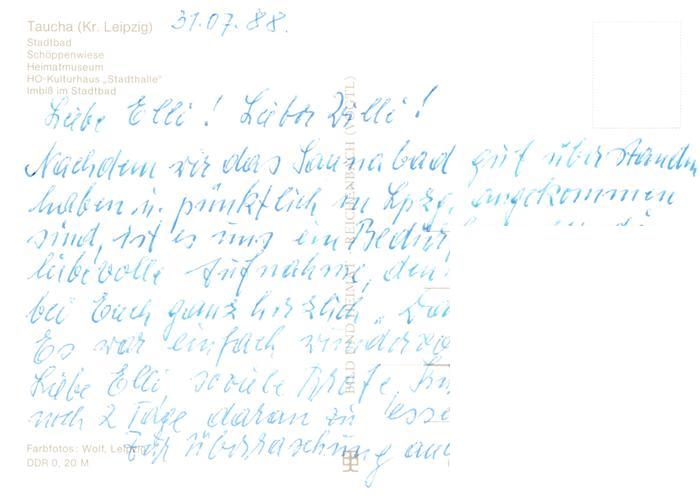 Taucha (Kr. Leipzig)
Stadtbad
Schöppenwiese
Heimatmuseum
HO-Kulturhaus „Stadthalle"
Imbiß im Stadtbad
31.07.88.
Liebe Elli! Lieber Willi!
Nachdem wir das Saunabad gut überstanden
haben u. pünktlich in Lpzg. angekommen
sind, ist es uns ein
liebevolle Aufnahme,
bei Euch ganz herzlich
Es war einfach
Liebe Elli soviele
noch 2 Tage daran zu
Zur Überraschung
Farbfotos: Wolf, Leipzig
DDR 0,20 M
BILD UND HEIMAT REICHENBACH (VOGTL)